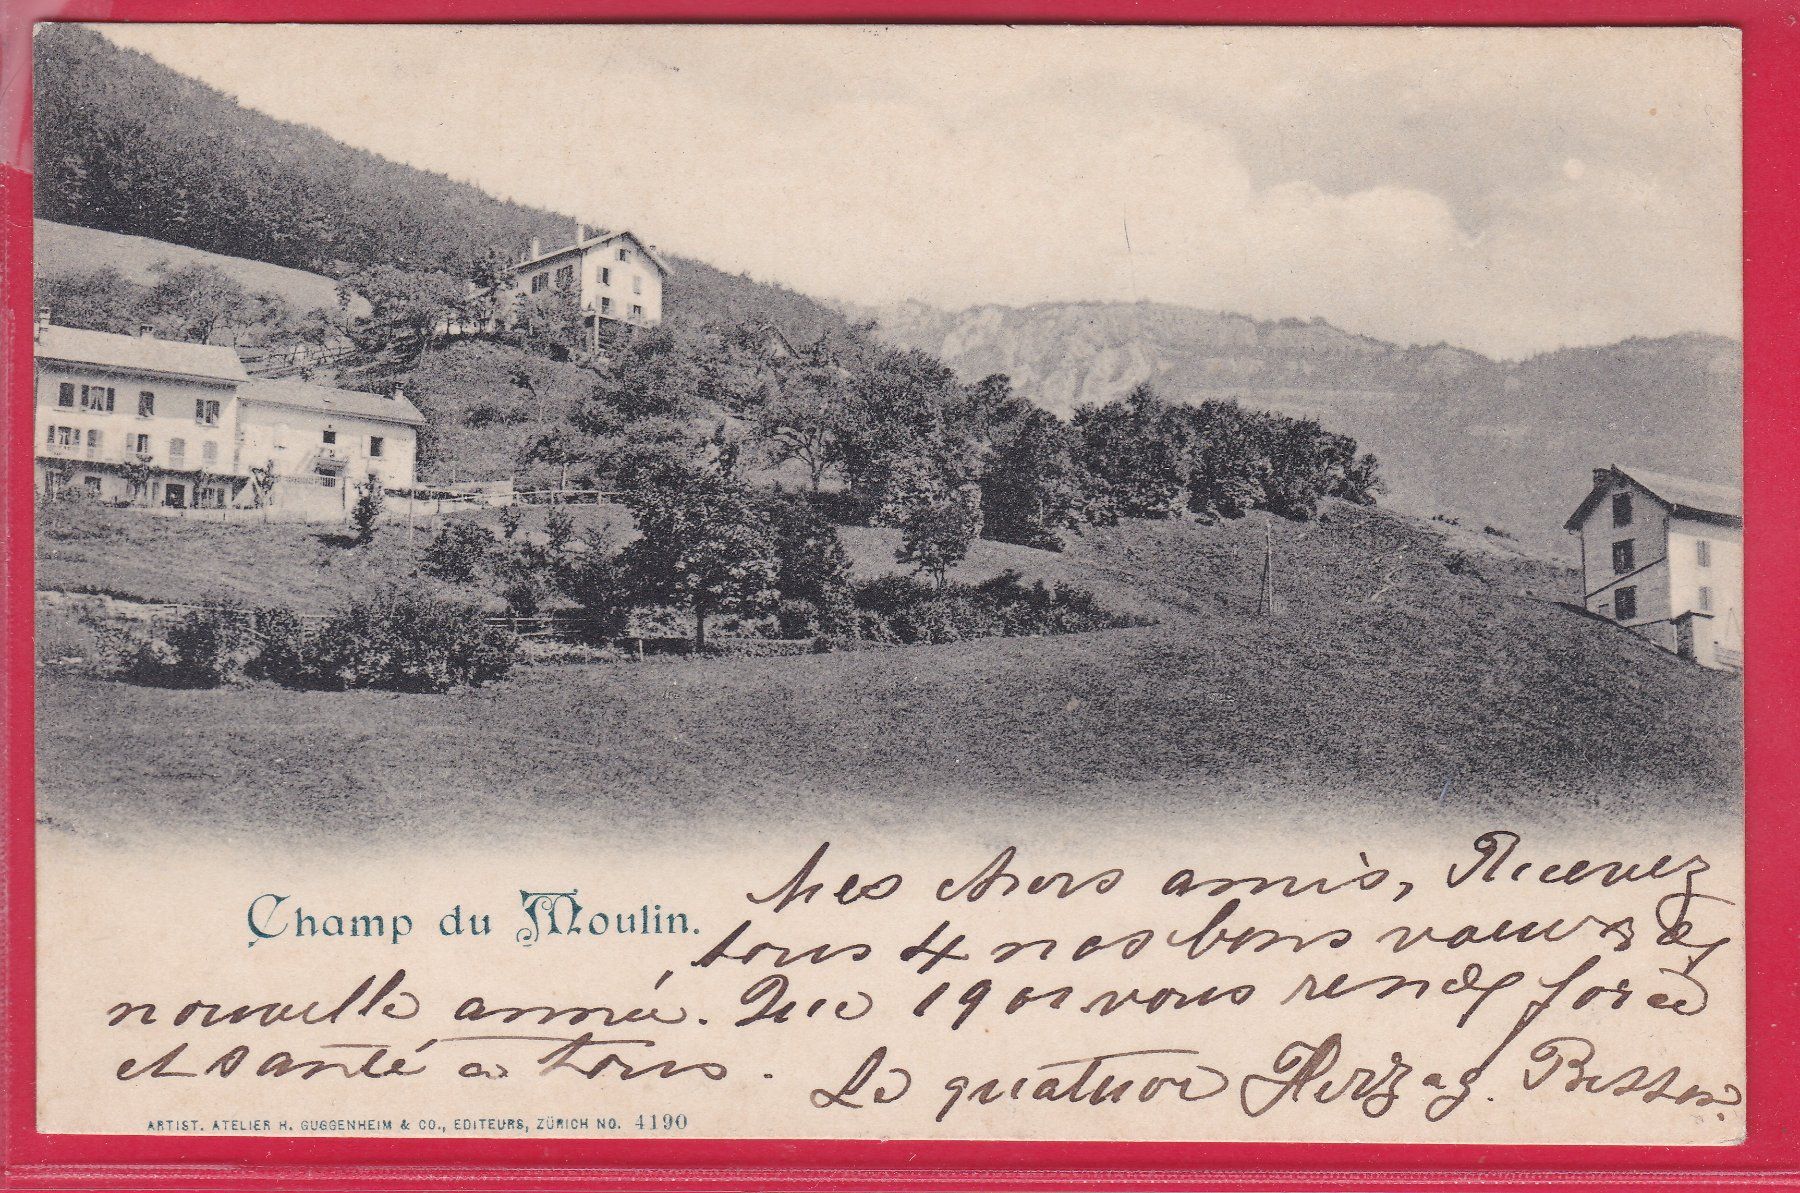 Champ du Moulin.
Mes chers amis, Recevez
tous 4 nos bons voeux de
nouvelle année. Que 1901 vous rende force
et santé à tous.
Le quatuor Herzog.
ARTIST. ATELIER H. GUGGENHEIM & CO., EDITEURS, ZÜRICH NO. 4190